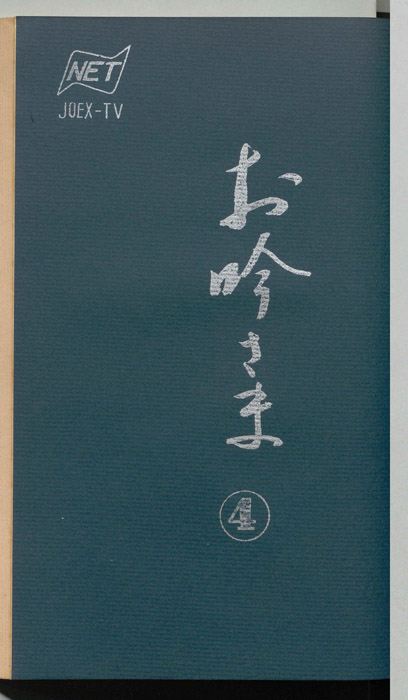 NET
JOEX-TV
お吟さま
4